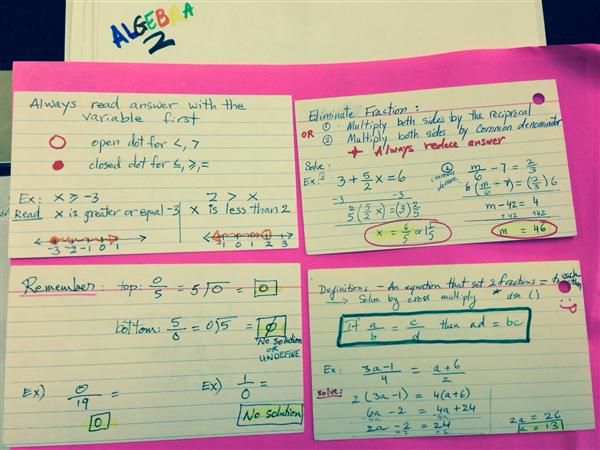 ALGEBRA
2
Always read answer with the
variable first
open dot for <, >
closed dot for ≤, ≥, =
Ex: x ≥ -3
Read x is greater or equal -3
2 > x
x is less than 2
-3 -2 -1 0 1
-1 0 1 2 3
Eliminate Fraction:
OR ① Multiply both sides by the reciprocal
② Multiply both sides by Common denominator
* Always reduce answer
Solve:
Ex: ① 3 + 5/2 x = 6
-3 -3
2/5 (5/2 x) = (3) 2/5
x = 6/5 or 1 1/5
② m/6 - 7 = 2/3
common denom:
6(m/6 - 7) = (2/3) 6
m - 42 = 4
+42 +42
m = 46
Remember: top: 0/5 = 5√0 = 0
bottom: 5/0 = 0√5 = ∅
No solution
OR
UNDEFINE
Ex) 0/19 =
0
Ex) 1/0 =
No solution
Definitions - An equation that set 2 fractions = to each other
→ Solve by cross multiply * use ()
If a/b = c/d then ad = bc
Ex: 3a-1/4 = a+6/2
solve:
2(3a-1) = 4(a+6)
6a - 2 = 4a + 24
2a - 2 = 24
2a = 26
a = 13